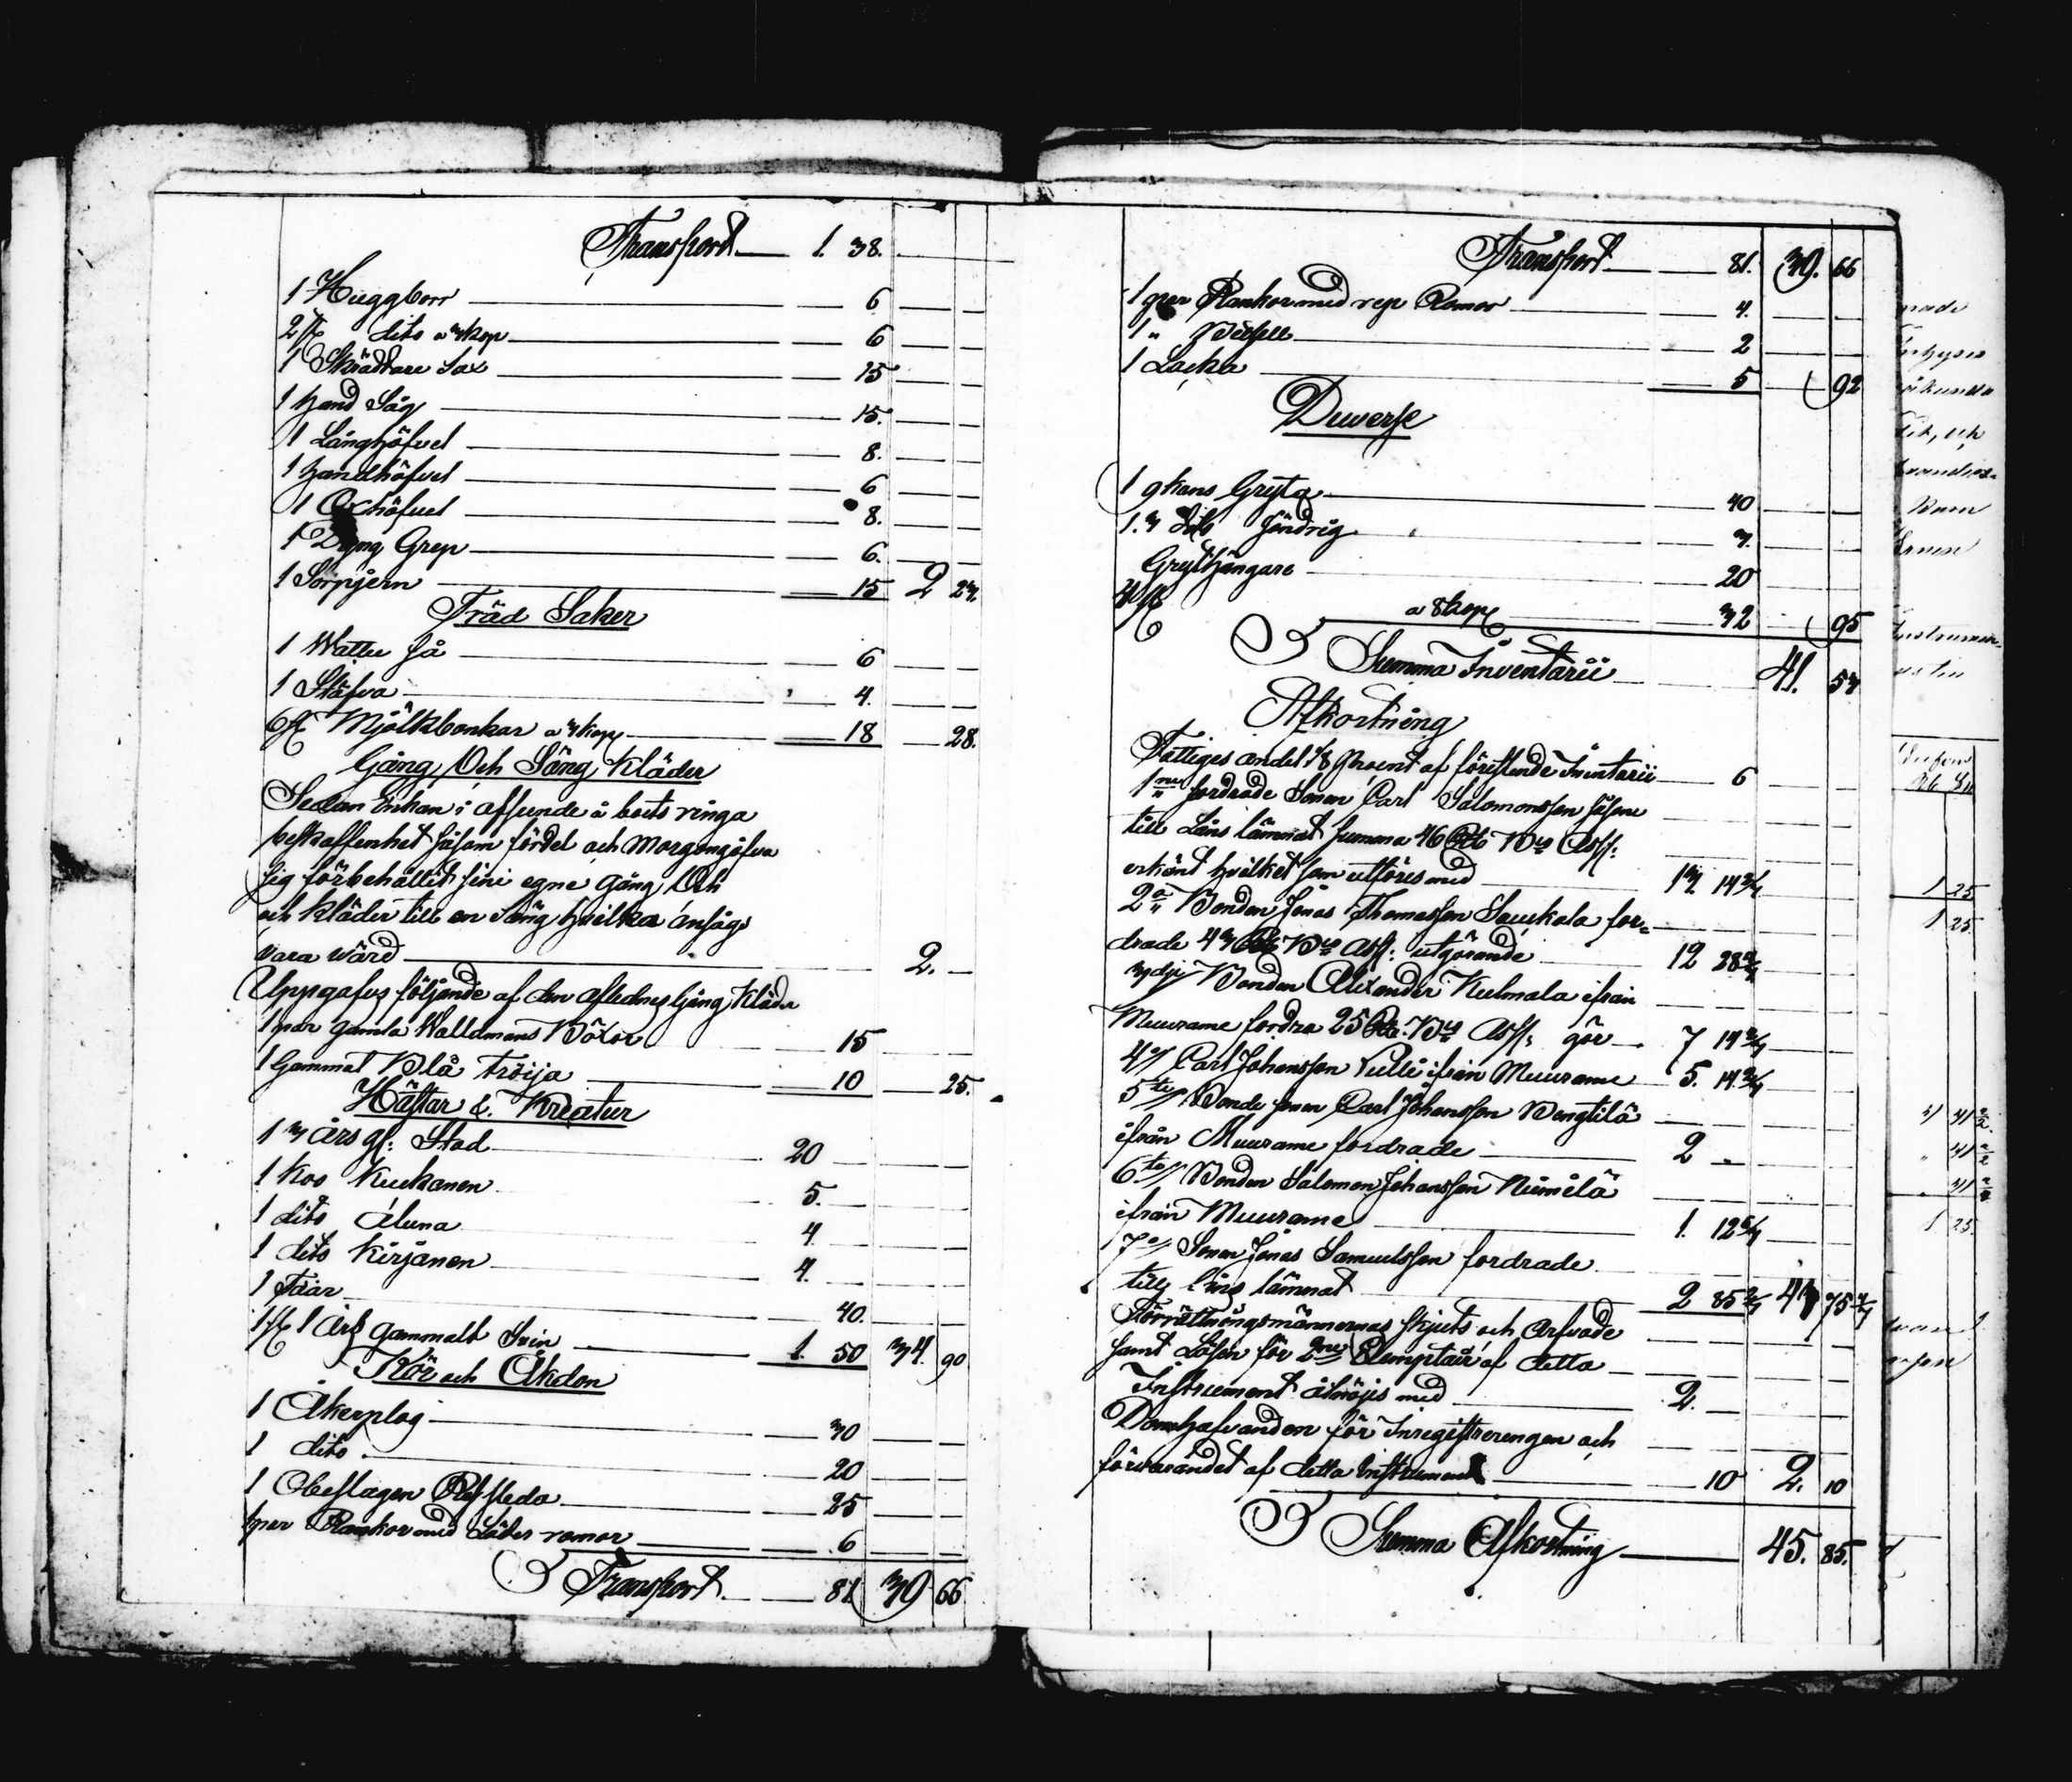 Transport 1. 38.
1 Huggborr 6
2 st dito a 3 kop 6
1 Skräddare Sax 15
1 hand Såg 15.
1 Långhöfvel 8.
1 handhöfvel 6
1 Oxhöfvel 8.
1 Dyng Grep 6.
1 Sorpjern 15 2 23.
Träd Saker
1 Watten så 6
1 Stäfva 4.
6 st Mjölkbonkar a 3 kop 18 28.
Gång Och Säng Kläder
Sedan Enkan i afseende å boets ringa
beskaffenhet såsom fördel och Morgongåfva
sig förbehållit sine egne Gång Och
och Kläder till en Säng hvilka ansågs
vara wärd 2.
Uppgafvs följande af den aflednes Gång Kläder
1 par gamla Walldmans Böxor 15
1 Gammal Blå tröija 10 25.
Hästar & Kreatur
1 3 års gl: Stod 20
1 Koo Kuckanen 5.
1 dito Aluna 4
1 dito Kirjanen 4.
1 Faar 40.
1 st 1 Års gammalt Svin 1. 50 34. 90
Kör och Åkdon
1 Åkerplog 30
1 dito 20
1 Obeslagen Ressleda 25
1 par Rankor med Läder remar 6
Transport 81 39 66
Transport 81. 39. 66
1 par Rankor med rep Remar 4.
1 " 2
1 Lacka 5 92
Diverse
1 9 kans Gryta 40
1. 3 dito söndrig 3.
Grythängare 20
a 8 kop 32 95
Summa Inventarii 41. 53
Afkortning
Fattiges andel 1/8 Procent af föreståendes Inventarii 6
1mo fordrade Sonen Carl Salomonsson såsom
till Låns lämnat summa 46 Rb Bco Ass:
erkänt hvilket som utföres med 13 14 2/7
2o Bonden Jonas Thomasson Saukola for=
drade 43 Rb Bco Ass: utgörande 12 28 4/7
3dje Bonden Alexander Kulmala ifrån
Muurame fordra 25 Rb. Bco Ass: gör 7 14 2/7
4o Carl Johansson Pulli ifrån Muurame 5. 14 2/7
5te Bonde sonen Carl Johansson Bengtilä
ifrån Muurame fordrade 2
6te Bonden Salomon Johansson Niimilä
ifrån Muurame 1. 12 6/7
7o Sonen Jonas Samuelsson fordrade
till låns lämnat 2 85 5/7 43 75 3/7
Förrättningsmännernas skjuts och Arfvode
samt Lösen för 2ne Exemplair af detta
Instrument åtnöjes med 2.
Domhafvanden för Inregistreringen och
förvarandet af detta Instrument 10 2. 10
Summa Afkortning 45. 85.
1 25
1 25
1 25